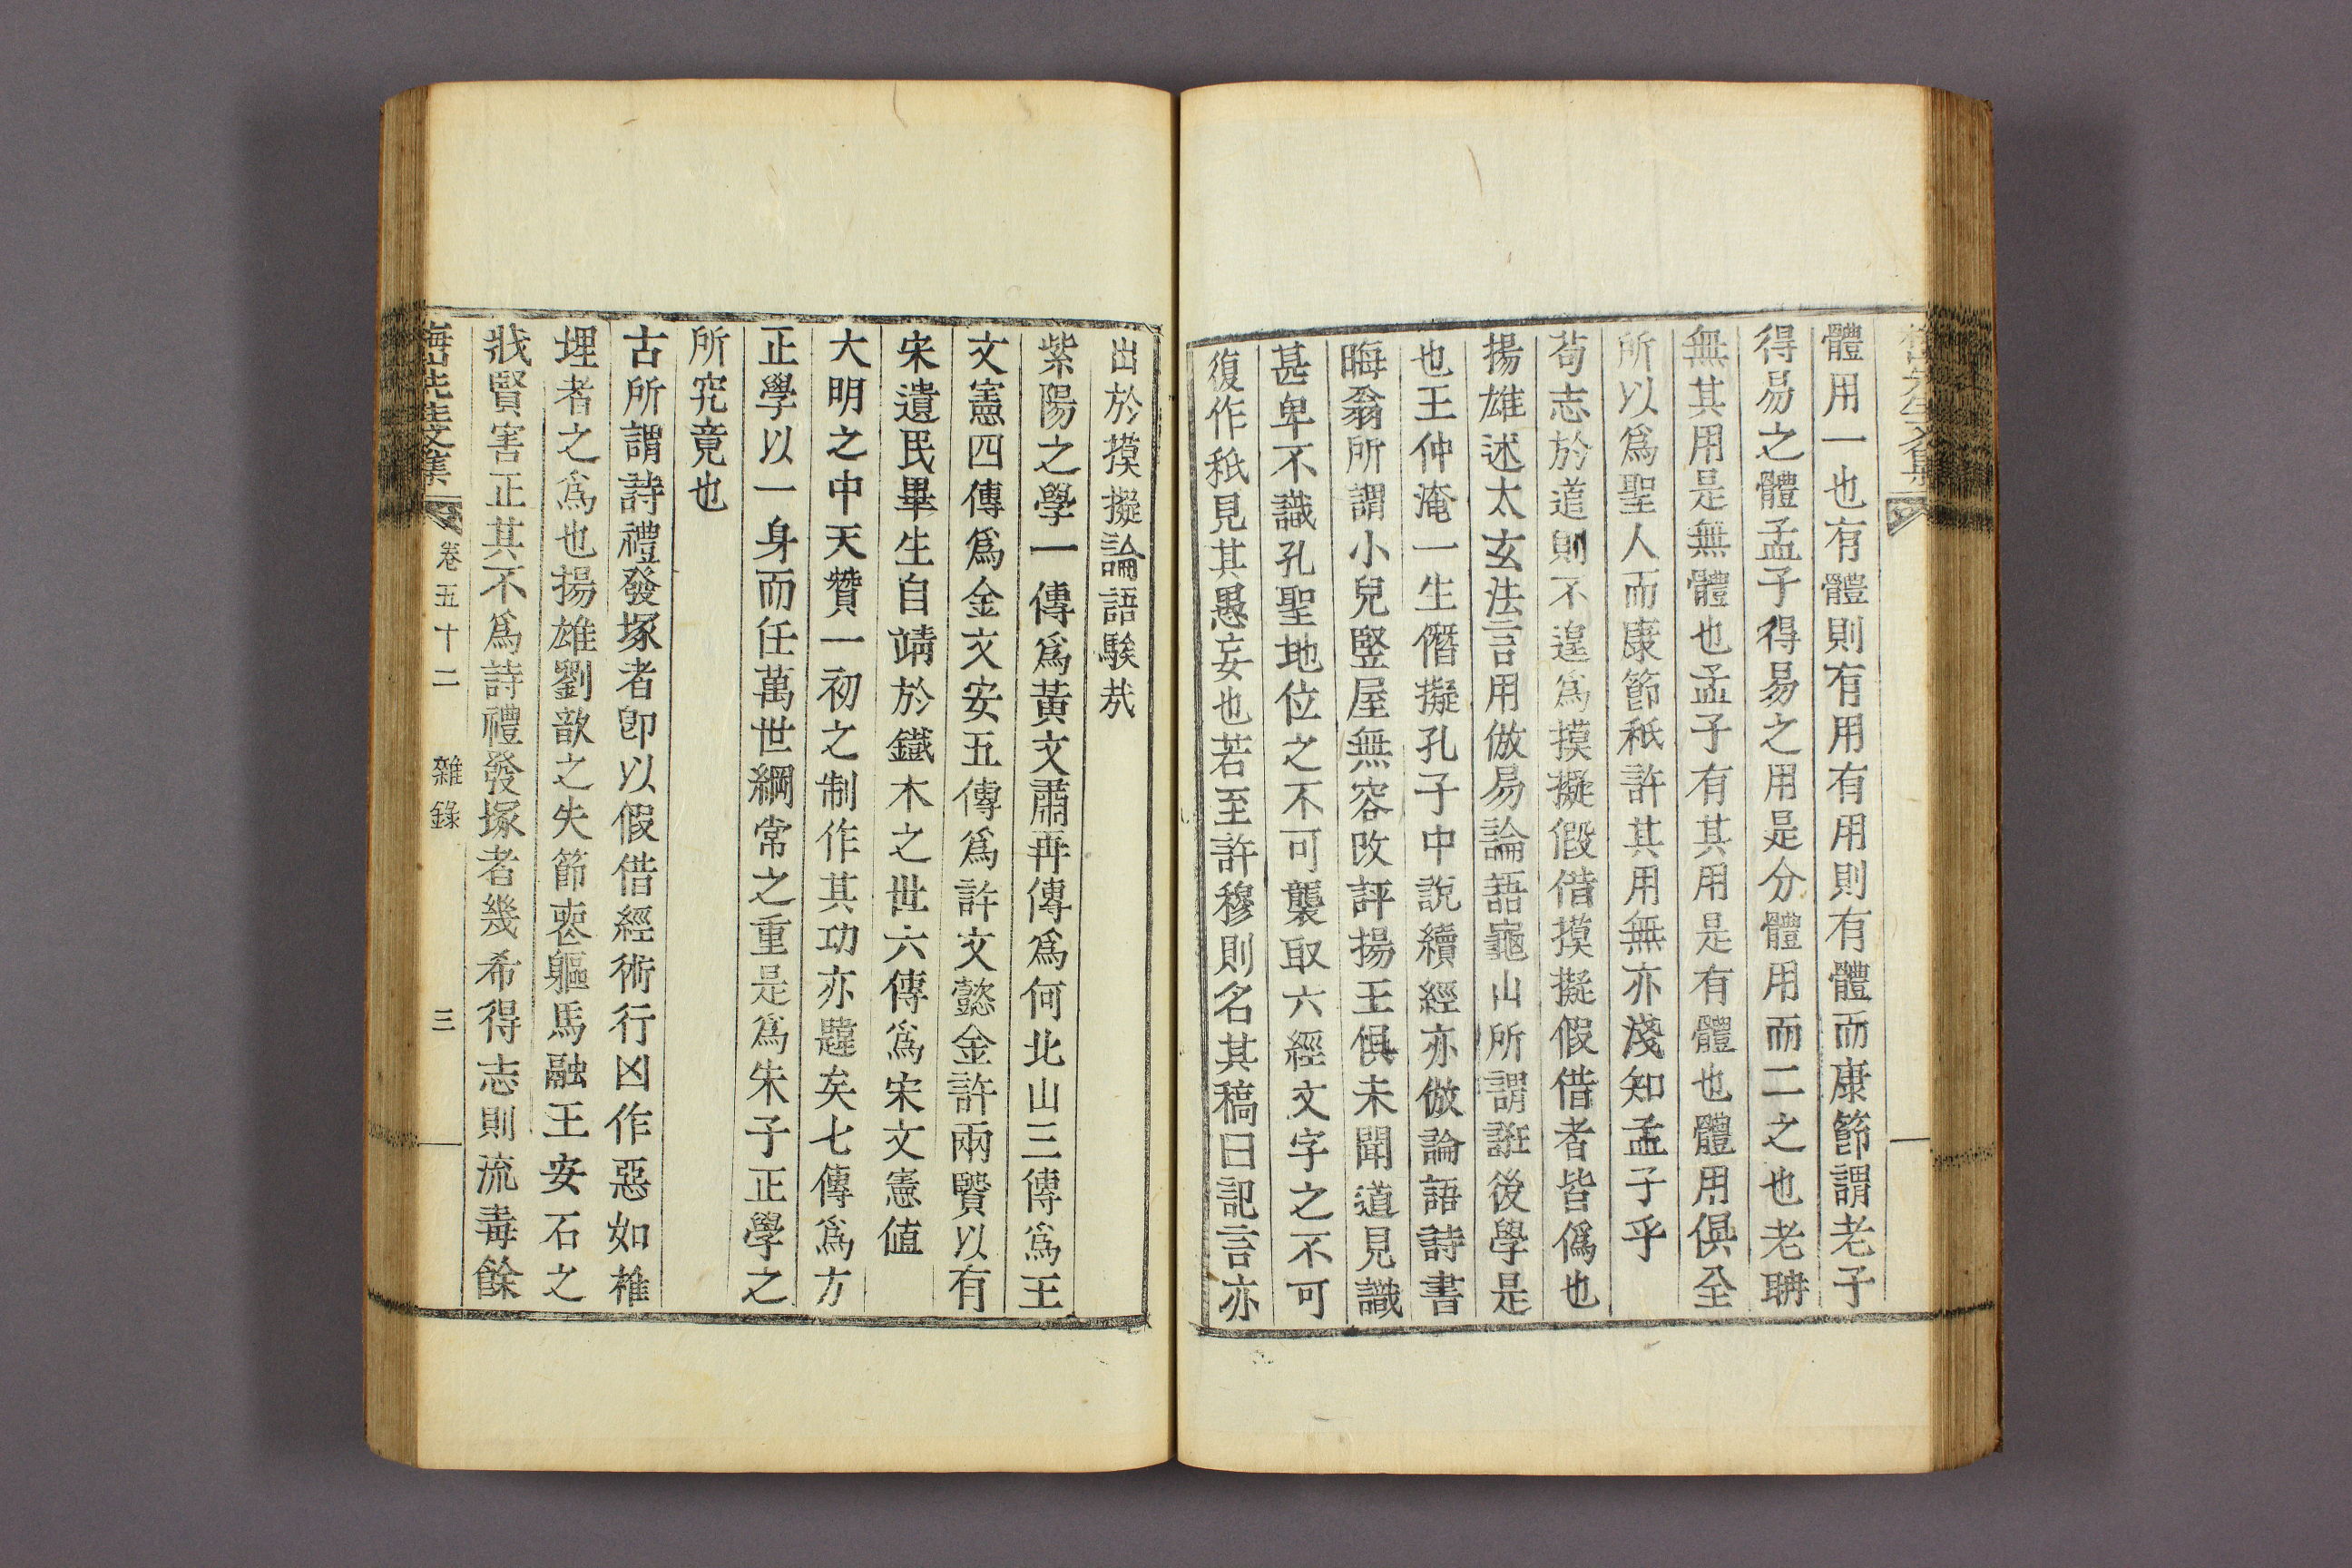 體用一也有體則有用有用則有體而康節謂老子
得易之體孟子得易之用是分體用而二之也老聃
無其用是無體也孟子有其用是有體也體用俱全
所以爲聖人而康節秖許其用無亦淺知孟子乎
荀志於道則不遑爲摸擬假借摸擬假借者皆僞也
揚雄述太玄法言用倣易論語龜山所謂誑後學是
也王仲淹一生僭擬孔子中說續經亦倣論語詩書
晦翁所謂小兒竪屋無容改評揚王俱未聞道見識
甚卑不識孔聖地位之不可襲取六經文字之不可
復作秖見其愚妄也若至許穆則名其稿曰記言亦
出於摸擬論語騃㦲
紫陽之學一傳爲黃文肅再傳爲何北山三傳爲王
文憲四傳爲金文安五傳爲許文懿金許兩賢以有
宋遺民畢生自靖於鐵木之世六傳爲宋文憲値
大明之中天贊一初之制作其功亦韙矣七傳爲方
正學以一身而任萬世綱常之重是爲朱子正學之
所究竟也
古所謂詩禮發塚者卽以假借經術行凶作惡如椎
埋者之爲也揚雄劉歆之失節喪軀馬融王安石之
戕賢害正其不爲詩禮發塚者幾希得志則流毒餘
梅山先生文集 卷五十二 雜錄 三